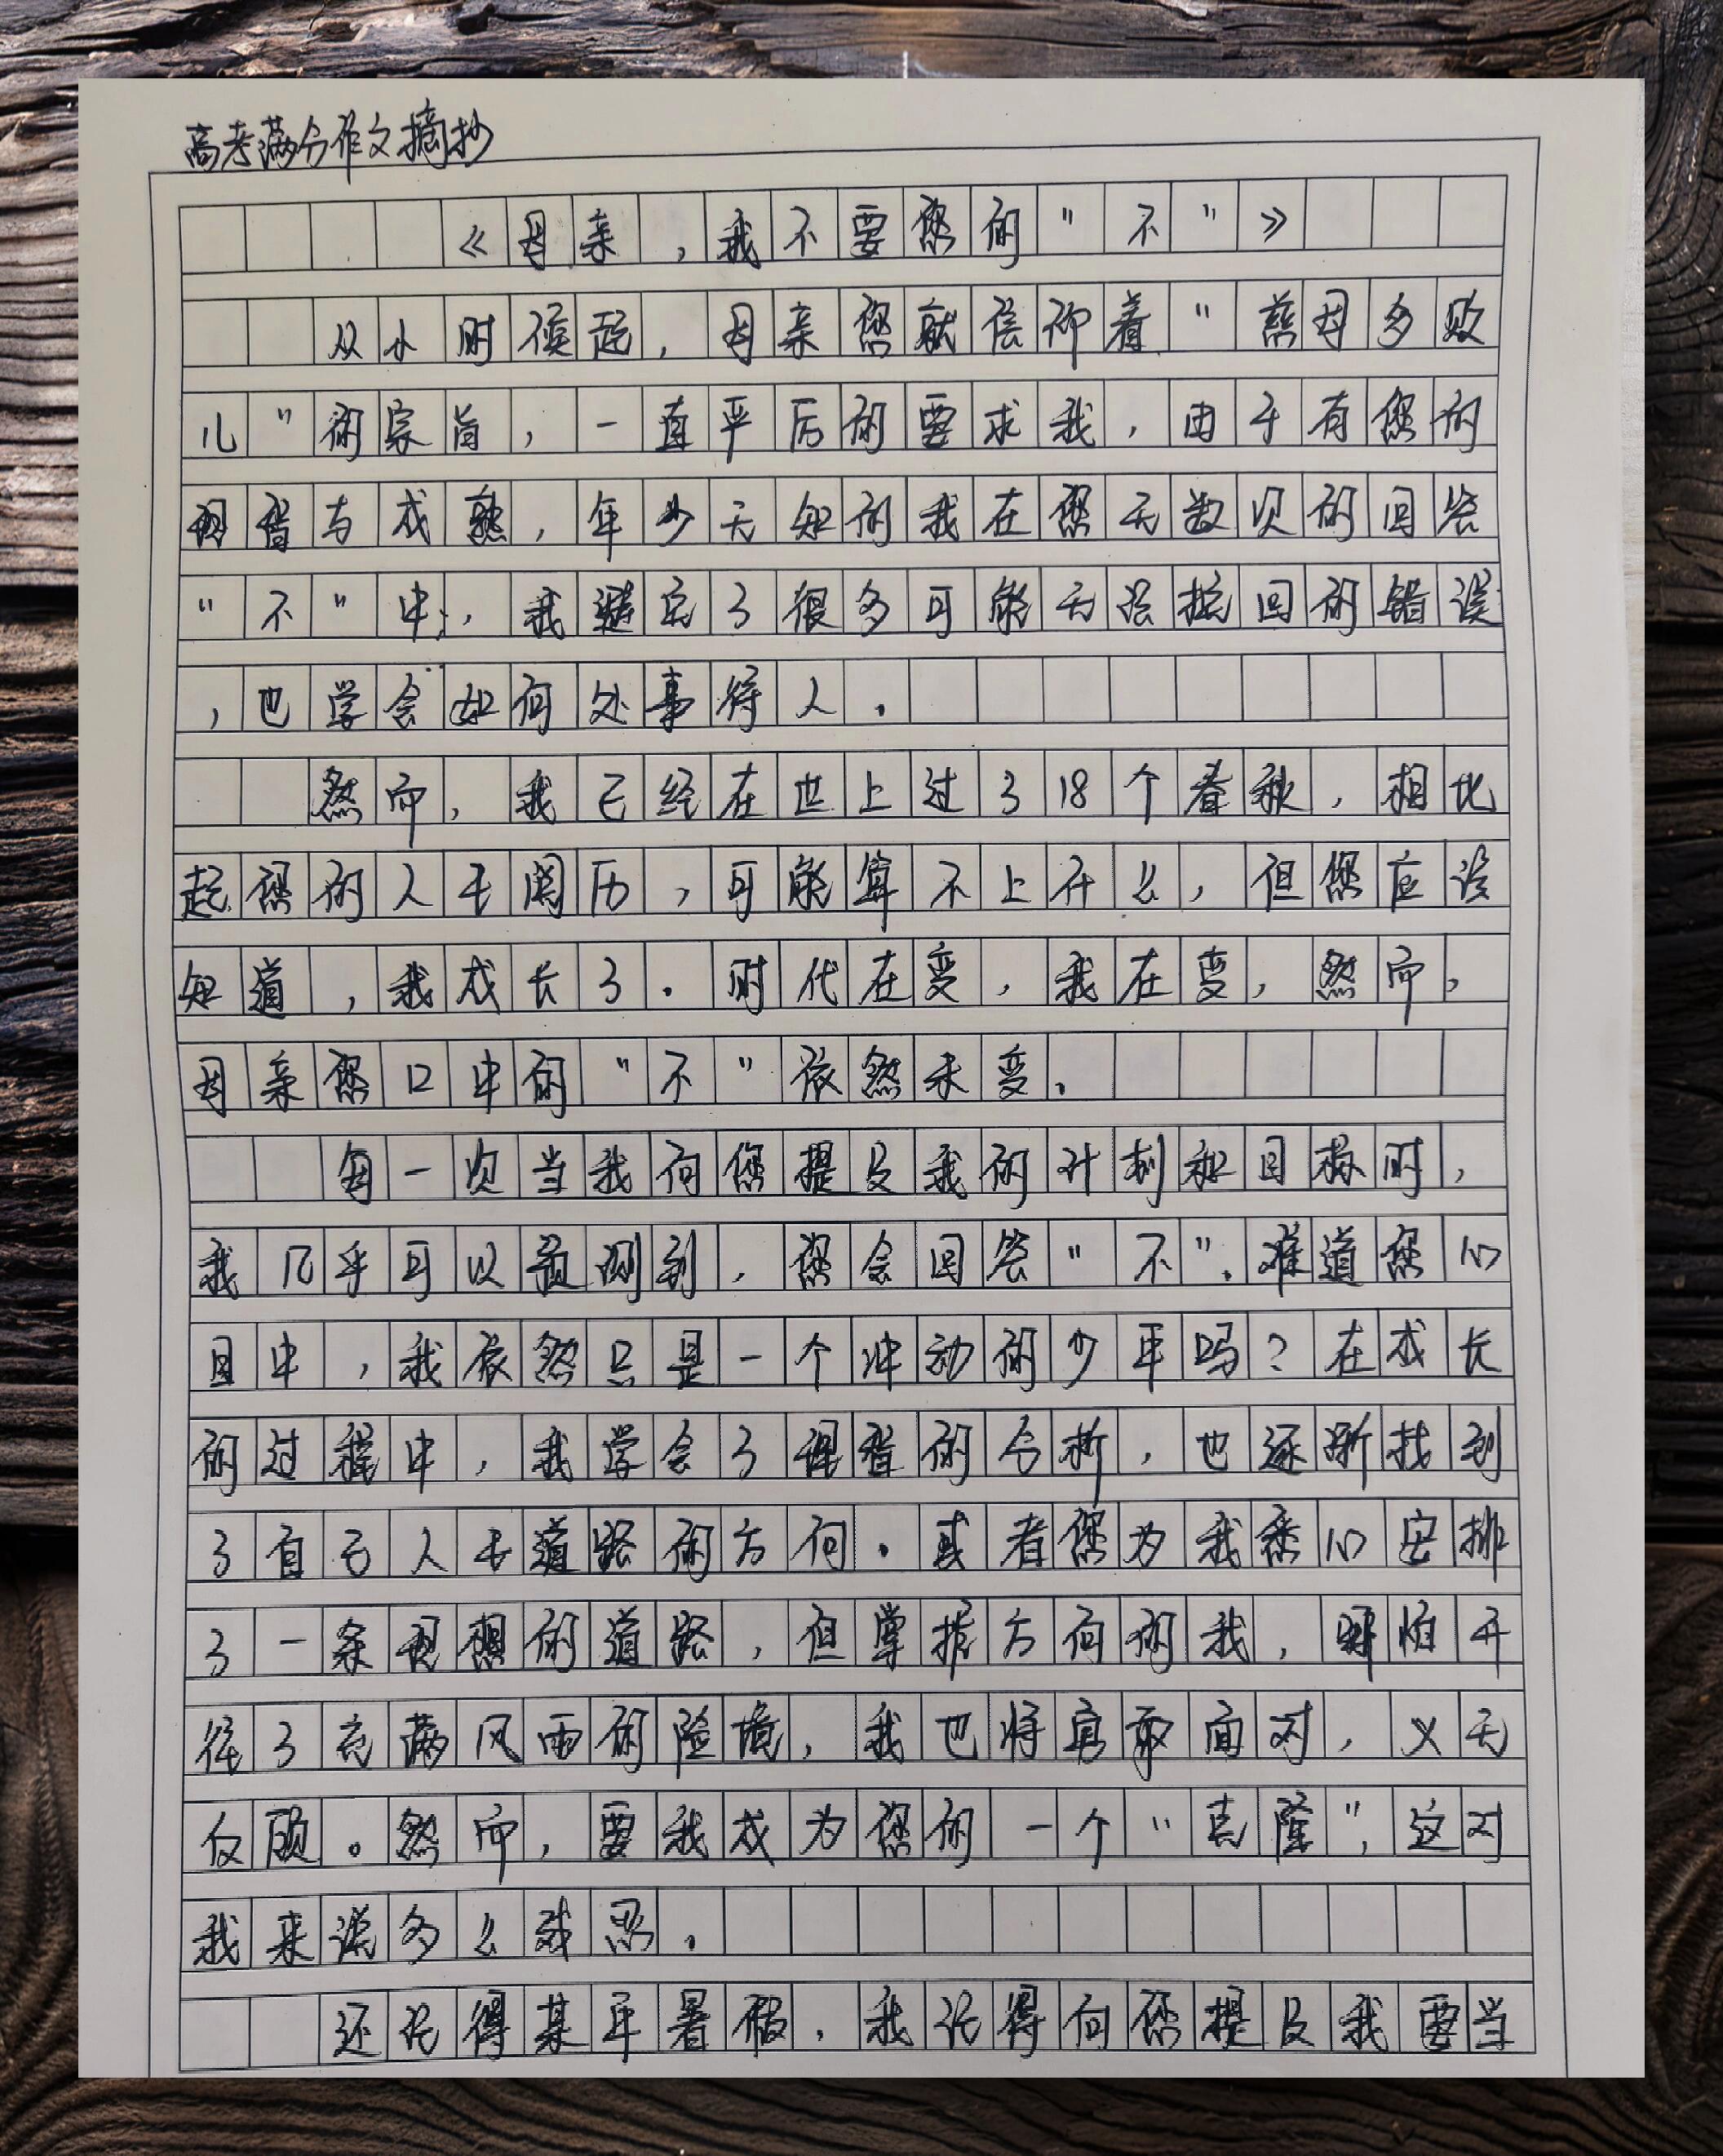 高考满分作文摘抄
《母亲，我不要您的“不”》
从小时候起，母亲您就信仰着“慈母多败
儿”的家旨，一直严厉的要求我，由于有您的
明智与成熟，年少无知的我在您无数次的回答
“不”中，我避免了很多可能无法挽回的错误
，也学会如何处事待人。
然而，我已经在世上过了18个春秋，相比
起您的人生阅历，可能算不上什么，但您应该
知道，我成长了。时代在变，我在变，然而，
母亲您口中的“不”依然未变。
每一次当我向您提及我的计划和目标时，
我几乎可以预测到，您会回答“不”。难道您心
目中，我依然只是一个冲动的少年吗？在成长
的过程中，我学会了理智的分析，也逐渐找到
了自己人生道路的方向。或者您为我悉心安排
了一条理想的道路，但掌握方向的我，哪怕开
往了充满风雨的险境，我也将勇敢面对，义无
反顾。然而，要我成为您的一个“克隆”，这对
我来说多么残忍。
还记得某年暑假，我记得向您提及我要当